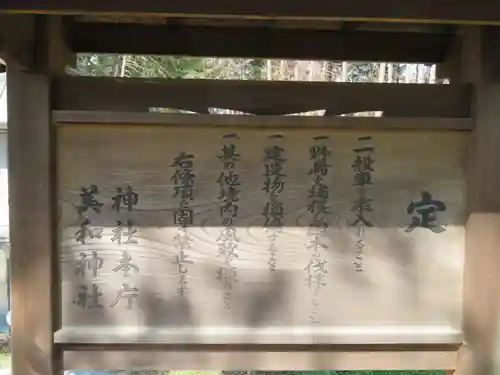 定
一 諸車を乗入すること
一 野鳥を捕獲し 木を伐採すること
一 建造物を損傷すること
一 其の他境内の風致を損ねること
右條項を固く禁止します
神社本庁
美和神社